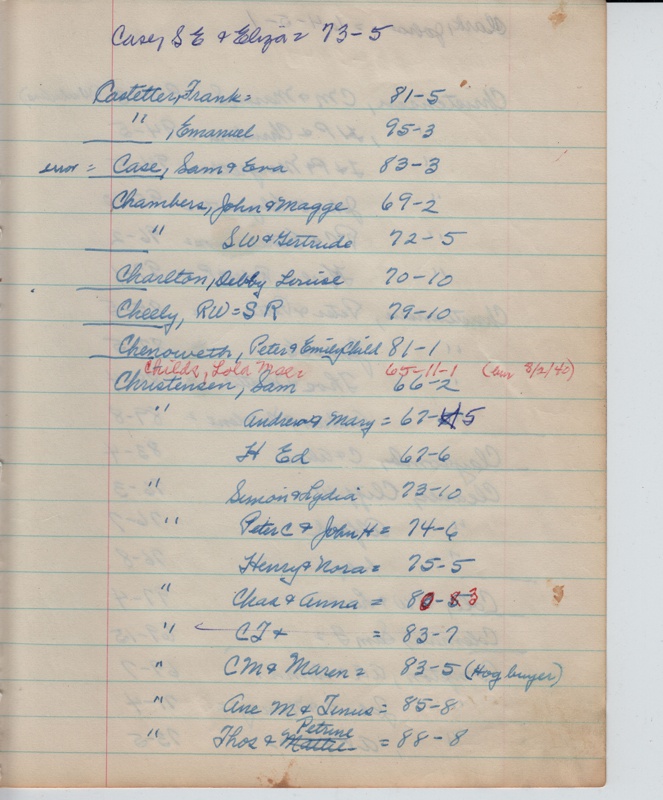 Case, S E & Eliza = 73-5
Castetter, Frank = 81-5
" , Emanuel 95-3
error = Case, Sam & Eva 83-3
Chambers, John & Magge 69-2
" S W & Gertrude 72-5
Charlton, Debby Louise 70-10
Cheely, RW = S R 79-10
Chenoweth, Peter & Emily Child 81-1
Childs, Lola Maer 65-11-1 (bur 8/2/40)
Christensen, Sam 66-2
" Andrew & Mary = 67-5
" H Ed 67-6
" Simon & Lydia 73-10
" " Peter C & John H = 74-6
" Henry & Nora = 75-5
" Chas & Anna = 80-3
" C J & = 83-7
" C M & Maren = 83-5 (Hog buyer)
" Ane M & Tinus = 85-8
" Thos & Mattie Petrine = 88-8